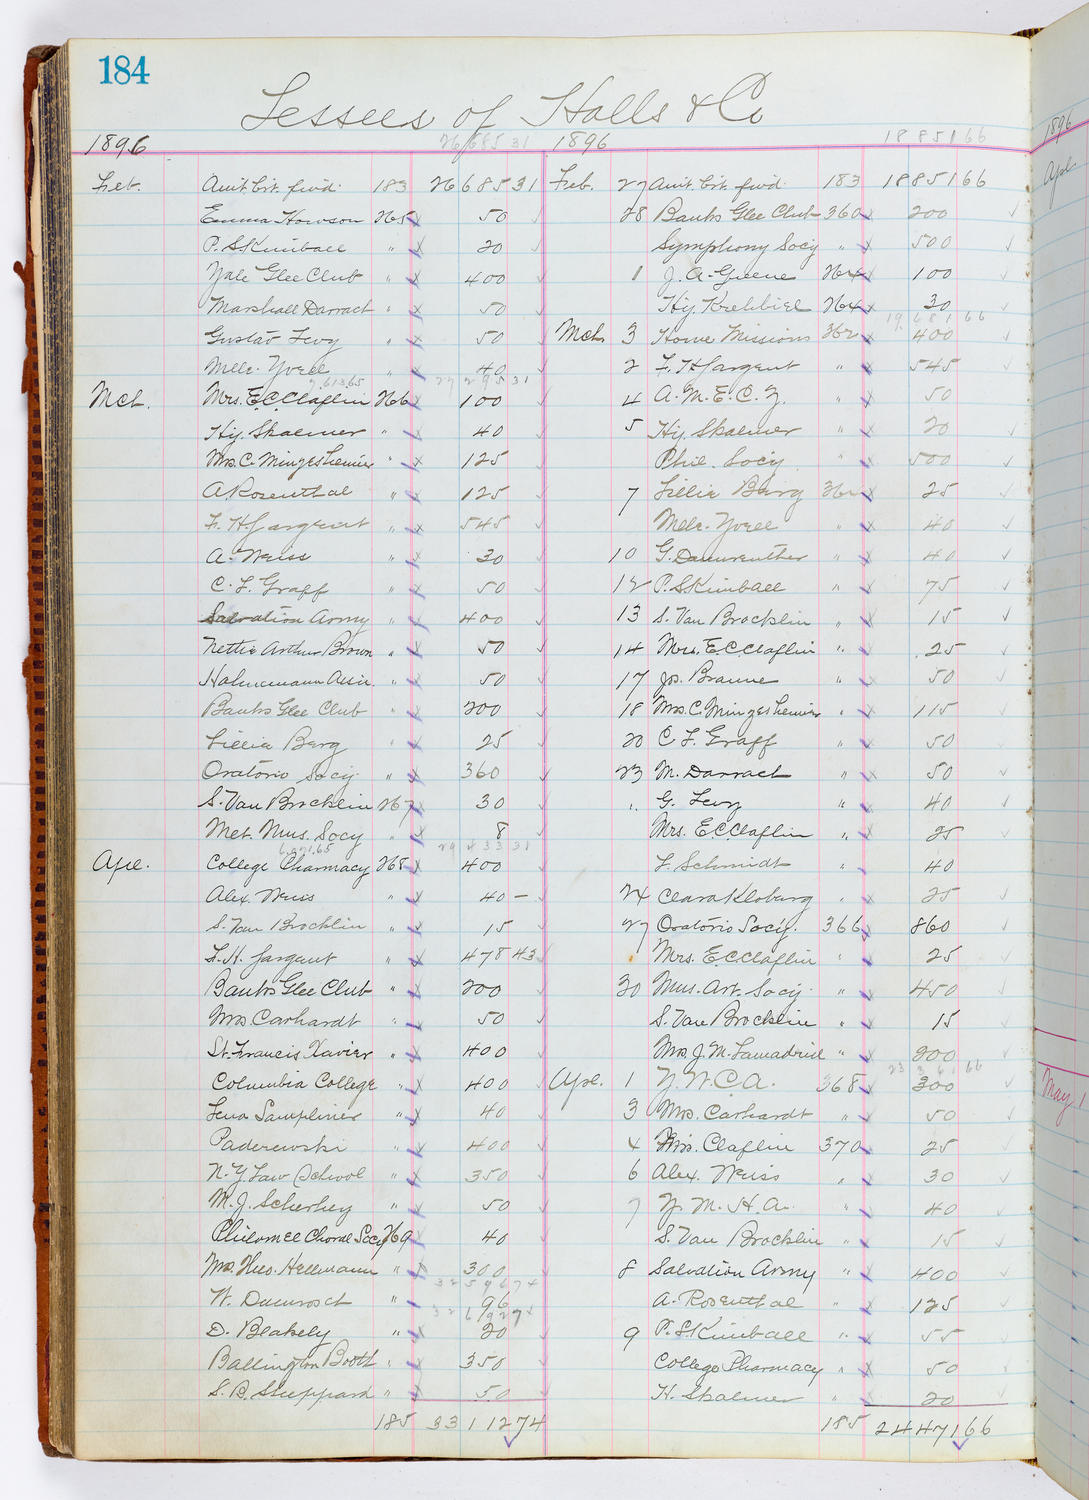 184
Lessees of Halls & Co
1896 26685 31 1896 18851 66
Feb. Amt. brt. fwd. 183 26685 31 Feb. 27 Amt. brt. fwd. 183 18851 66
Emma Howson 265 50 28 Banks Glee Club 360 200
P. S Kimball " 20 Symphony Socy " 500
Yale Glee Club " 400 1 J. A. Greene 264 100
Marshall Darrach " 50 Hy. Krehbiel 264 30
19681 66
Gustav Levy " 50 Mch. 3 Home Missions 362 400
Melle. Yvell " 40 2 F. H Sargent " 545
27295 31
Mch. Mrs. E.C. Claflin 266 100 4 A. M. E. C. Z. " 50
Hy. Skalmer " 40 5 Hy. Skalmer " 20
Mrs. C. Mingesheimer " 125 Phil. Socy " 500
A Rosenthal " 125 7 Lillie Berg 25
F. H Sargent " 545 Melle. Yvell " 40
A. Weiss " 30 10 G. Dannreuther " 40
C. L. Graff " 50 12 P. S Kimball " 75
Salvation Army " 400 13 S. Van Brocklin " 15
Nettie Arthur Brown " 50 14 Mrs. E.C. Claflin " 25
Hahnemann Assn. " 50 17 Jos. Braune " 50
Banks Glee Club " 200 18 Mrs C. Mingesheimer " 115
Lillie Berg " 25 20 C L. Graff " 50
Oratorio Socy " 360 23 M. Darrach " 50
S. Van Brocklin 267 30 " G. Levy " 40
Met. Mus. Socy " 8 Mrs. E.C. Claflin " 25
29433 31
Apl. College Pharmacy 268 400 F. Schmidt " 40
Alex. Weiss " 40 – 24 Clara Kloberg " 25
S. Van Brocklin " 15 27 Oratorio Socy. 366 860
F. H. Sargent " 478 43 Mrs. E.C. Claflin " 25
Banks Glee Club " 200 30 Mus. Art. Socy " 450
Mrs Carhardt " 50 S. Van Brocklin " 15
St. Francis Xavier " 400 Mrs J. M. Lamadrid " 200
23361 66
Columbia College " 400 Apl. 1 Y. W. C. A. 368 300
Lena Sampliner " 40 3 Mrs. Carhardt " 50
Paderewski " 400 4 Mrs. Claflin 370 25
N. Y Law School " 350 6 Alex. Weiss " 30
M. J. Scherhey " 50 7 Y. M. H. A. " 40
Philomel Choral Socy 269 40 S. Van Brocklin " 15
Mrs. Theo. Hellmann " 300 8 Salvation Army " 400
32596 74
W. Damrosch " 96 A. Rosenthal " 125
32692 74
D. Blakely " 20 9 P. S. Kimball " 55
Ballington Booth " 350 College Pharmacy " 50
S. B. Sheppard " 50 H. Skalmer " 20
185 33112 74 185 24471 66
1896
Apl.
May 1